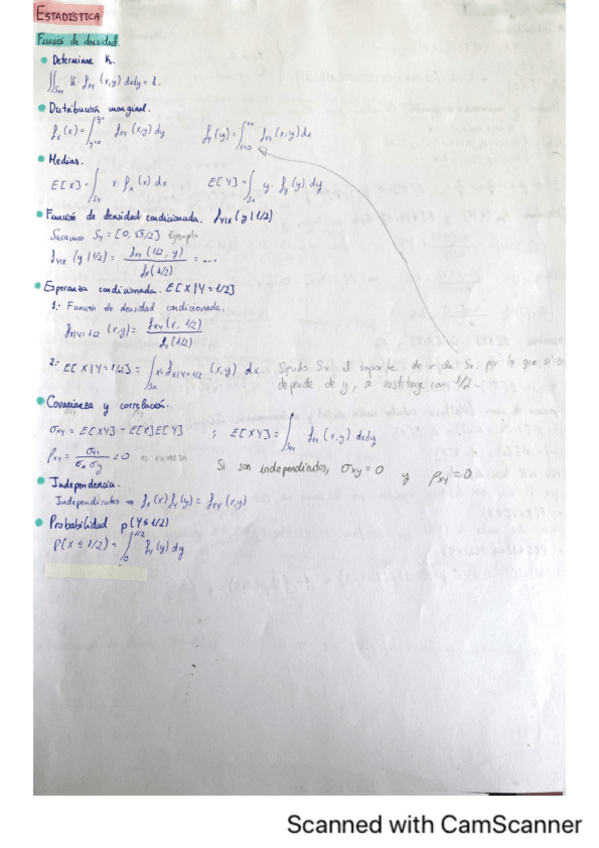 ESTADÍSTICA
Función de densidad.
• Determinar K.
∬Sxy K · fxy (x,y) dxdy = 1.
• Distribución marginal.
fx (x) = ∫ fxy (x,y) dy    fy (y) = ∫ fxy (x,y) dx
• Medias.
E[X] = ∫ x · fx (x) dx    E[Y] = ∫ y · fy (y) dy
• Función de densidad condicionada. fY|X (y|1/2)
Sy = [0, √3/2] Ejemplo
fY|X (y|1/2) = fxy (1/2, y) / fx (1/2) = ...
• Esperanza condicionada. E[X|Y=1/2]
1.- Función de densidad condicionada.
fX|Y=1/2 (x,y) = fxy (x, 1/2) / fy (1/2)
2.- E[X|Y=1/2] = ∫Sx x · fX|Y=1/2 (x,y) dx. Siendo Sx el soporte de x de Sx; por lo que si
depende de y, se sustituye con 1/2.
• Covarianza y correlación.
σxy = E[XY] - E[X]E[Y] ; E[XY] = ∫ fxy (x,y) dxdy
ρxy = σxy / σx σy
Si son independientes, σxy = 0 y ρxy = 0
• Independencia.
Independientes ⇒ fx (x) fy (y) = fxy (x,y)
• Probabilidad p(Y≤1/2)
P(X ≤ 1/2) = ∫0 1/2 fy (y) dy
Scanned with CamScanner